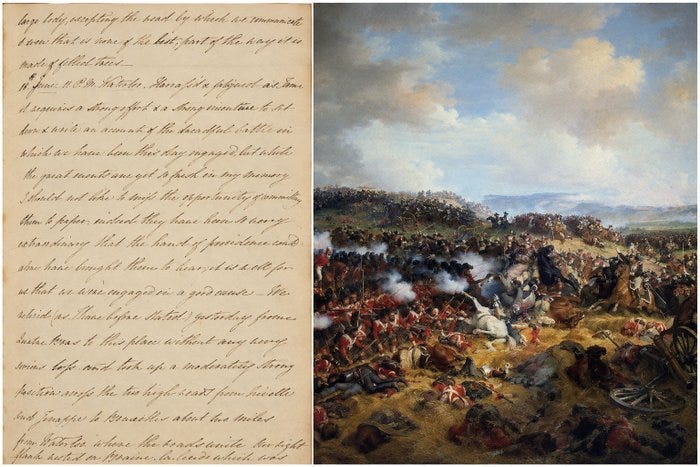 large body, excepting the road by which we communicate
& even that is none of the best, part of the way it is
made of felled trees —
18th June 11 P.M. Waterloo. Harrass'd & fatigued as I am
it requires a strong effort & a strong incentive to sit
down & write an account of the dreadful battle in
which we have been this day engaged, but while
the great events are yet so fresh in my memory
I should not like to miss the opportunity of committing
them to paper; indeed they have been so very
extraordinary that the hand of providence could
alone have brought them to bear, it is well for
us that we were engaged in a good cause — We
retired (as I have before stated) yesterday from
Quatre Bras to this place without any very
serious loss and took up a moderately strong
position across the two high roads from Nivelle
and Genappe to Bruxelles about two miles
from Waterloo where the roads unite Our right
flank rested on Braine La Leude which was